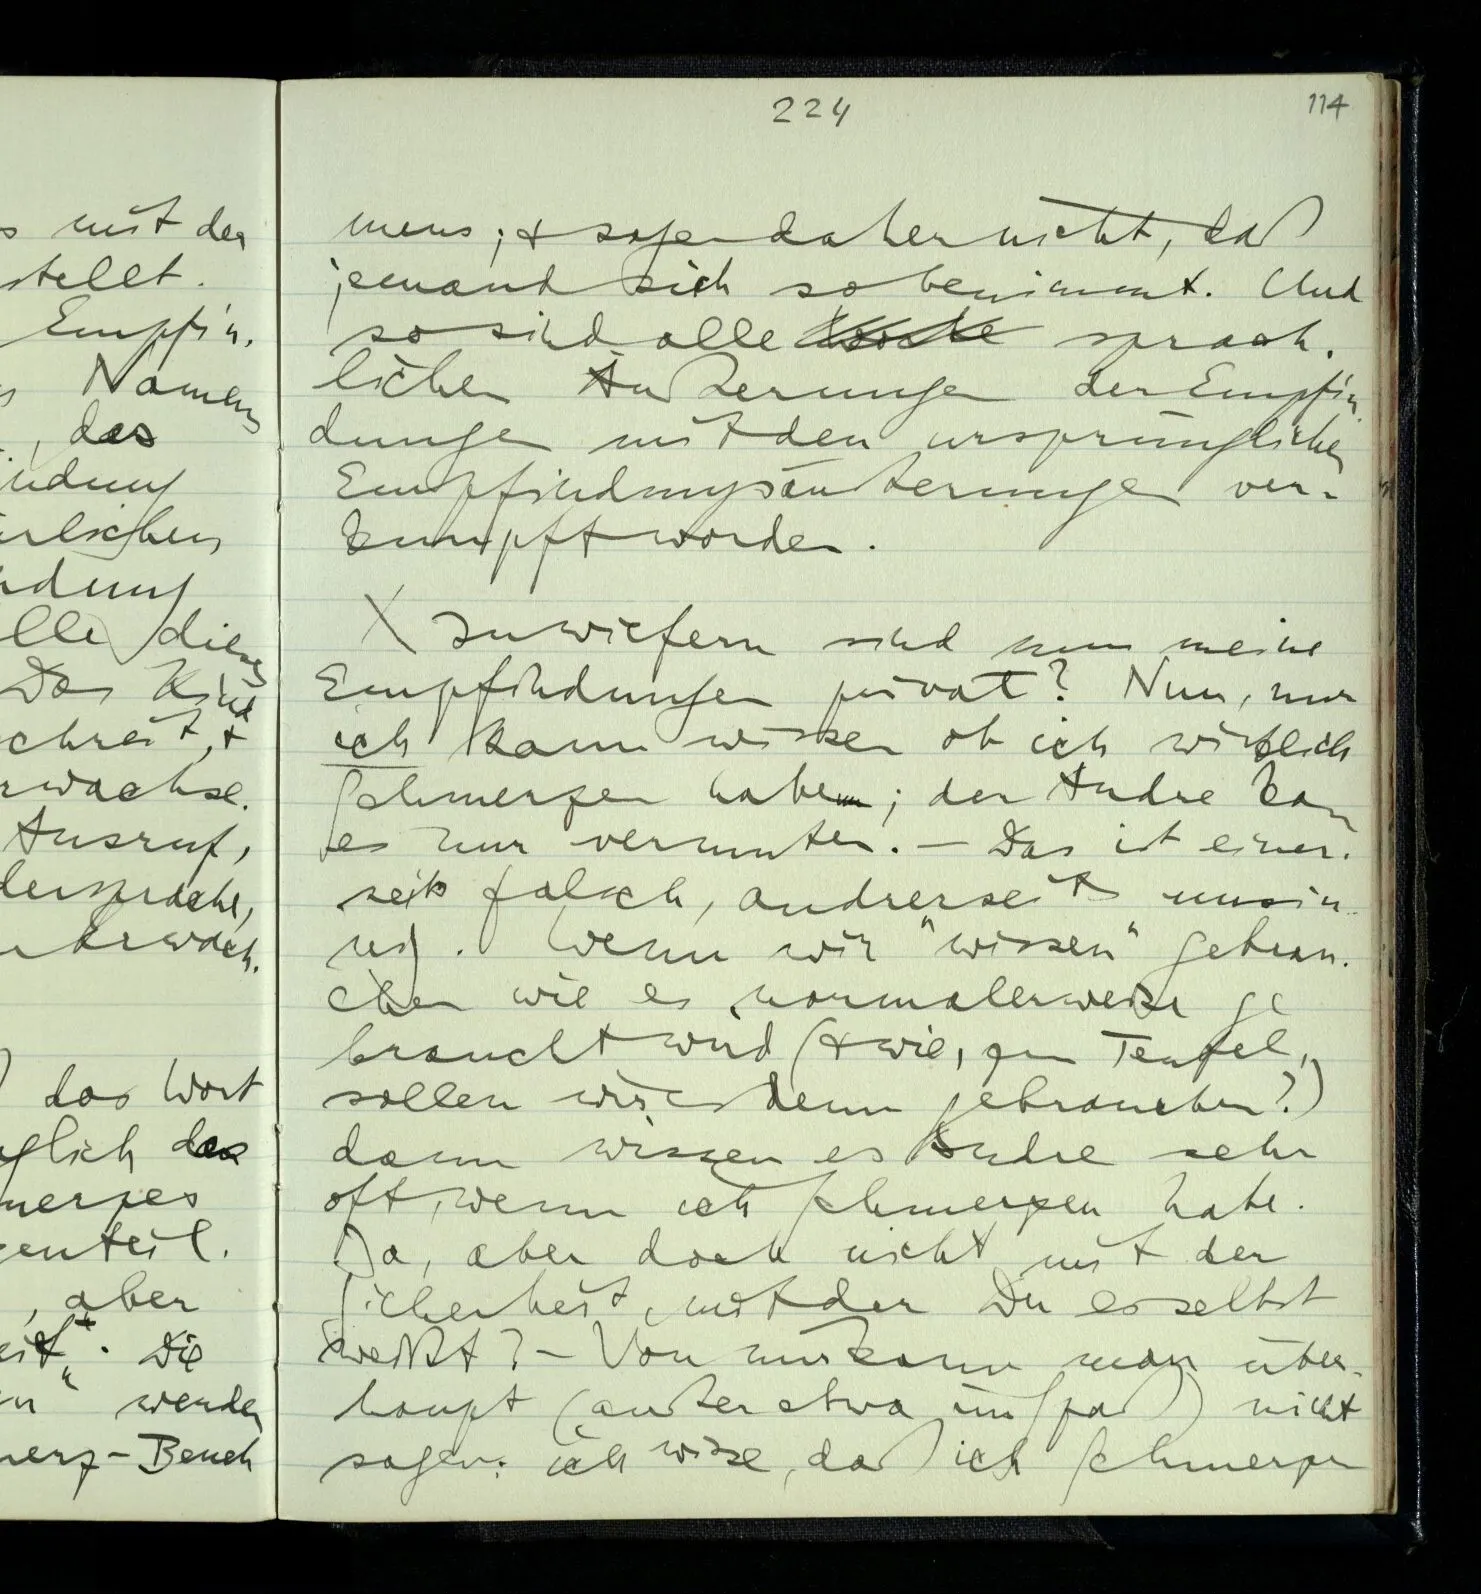 224
114
s mit der
stellt.
Empfin.
s Namens
, das
indung
ürlichen
ndung
lle dieser
Das Kind
schreit, +
rwachse.
Ausruf,
dersprache,
n Erwach.
das Wort
glich das
merzes
enteil.
, aber
eit". Die
n" werden
merz-Beneh
mens; & sagen daher nicht, daß
jemand sich so benimmt. Und
so sind alle sprach.
lichen Äußerungen der Empfin
dungen mit den ursprünglichen
Empfindungsäußerungen ver-
knüpft worden.
\ Inwiefern sind nun meine
Empfindungen privat? Nun, nur
ich kann wissen ob ich wirklich
Schmerzen habe; der Andre kann
es nur vermuten. – Das ist einer.
seits falsch, andrerseits unsin.
nig. Wenn wir "wissen" gebrau.
chen wie es normalerweise ge
braucht wird (& wie, zum Teufel,
sollen wir's denn gebrauchen?)
dann wissen es Andre sehr
oft, wenn ich Schmerzen habe.
Ja, aber doch nicht mit der
Sicherheit, mit der Du es selbst
weißt? – Von mir kann man über-
haupt (außer etwa im Spaß) nicht
sagen: ich wisse, daß ich Schmerzen